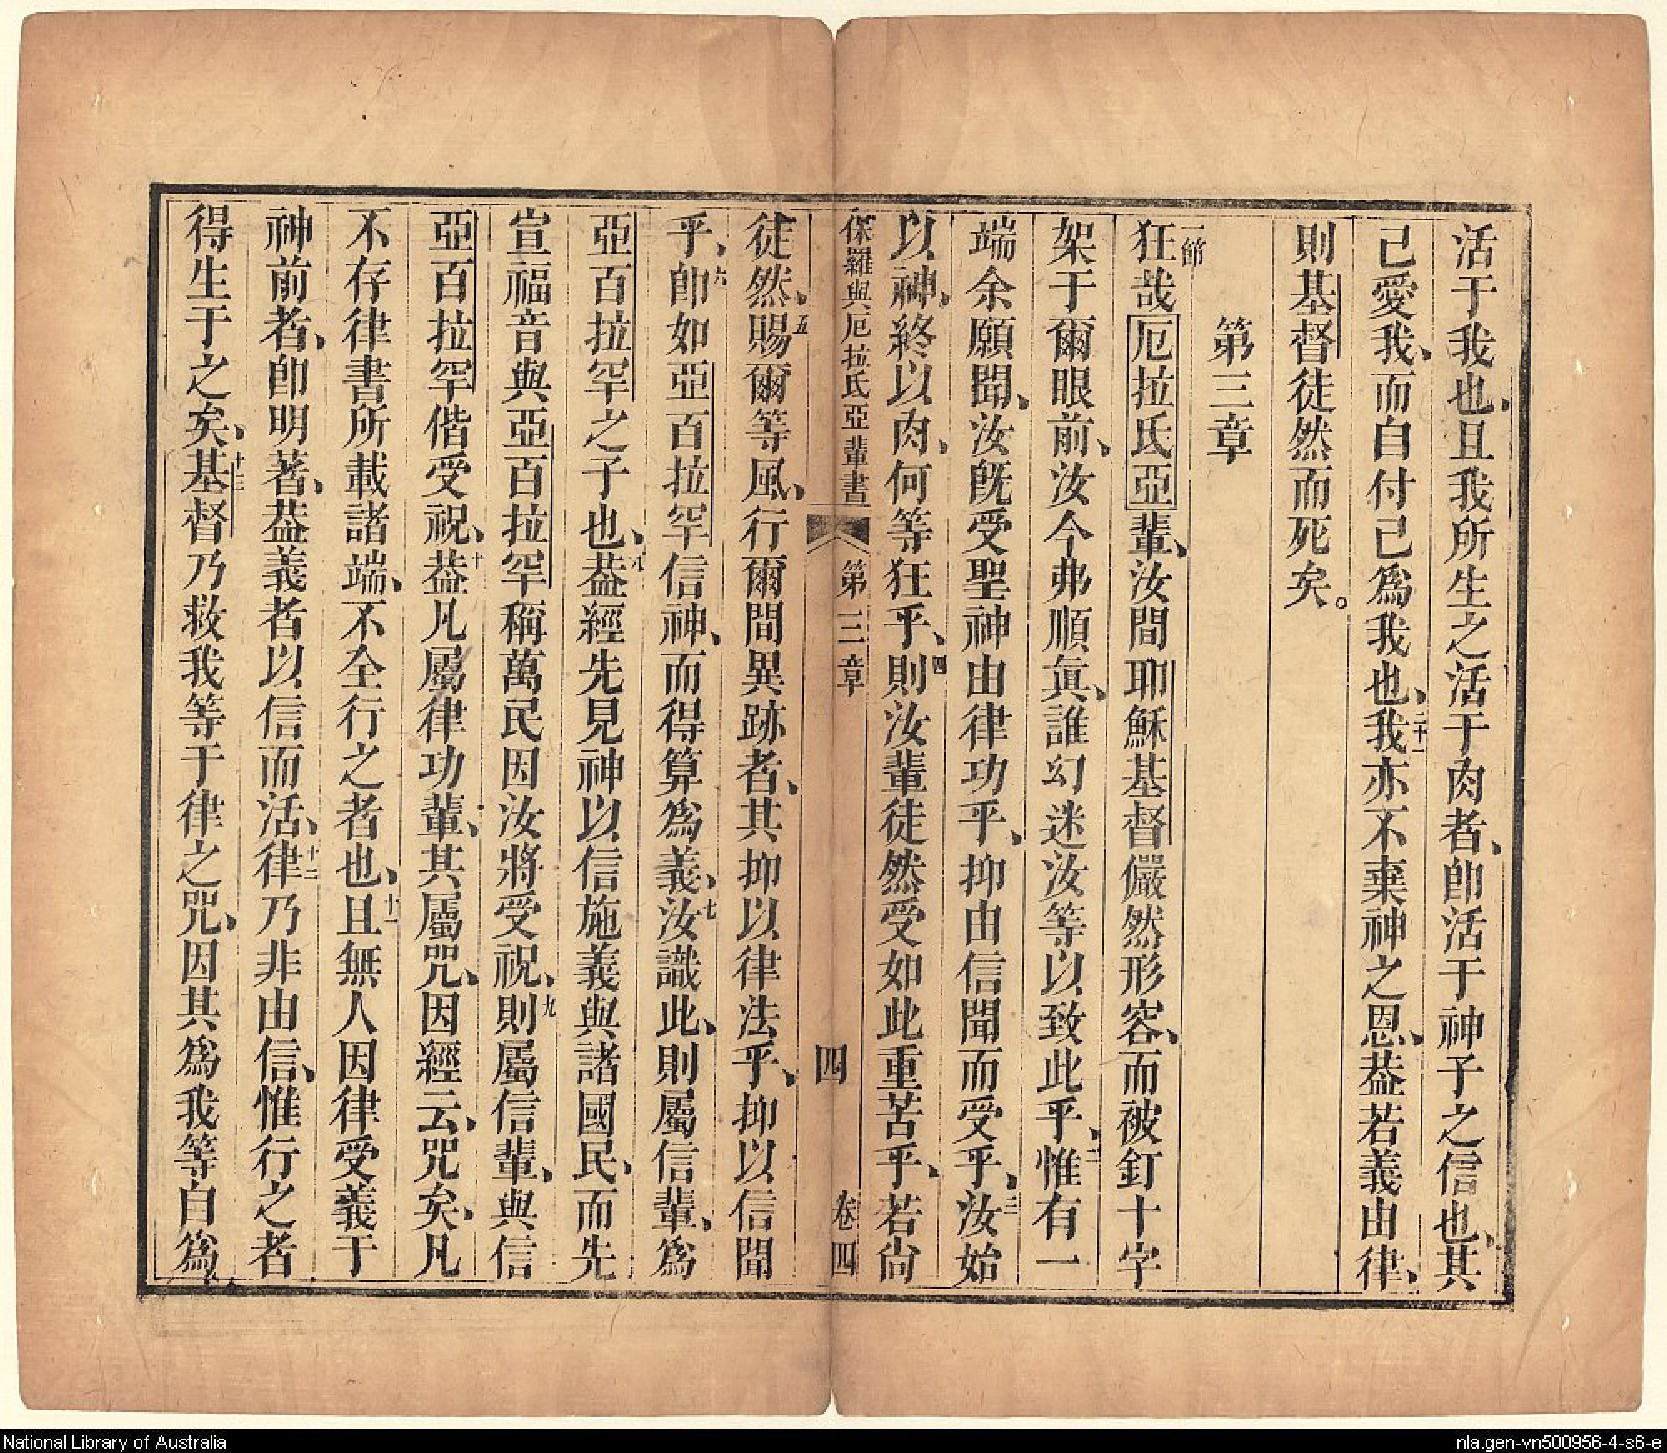 活于我也、且我所生之活于肉者、卽活于神子之信也、其
己愛我、而自付己爲我也、二十一我亦不棄神之恩、葢若義由律、
則基督徒然而死矣。
第三章
一節狂哉厄拉氏亞輩、汝間耶穌基督儼然形容、而被釘十字
架于爾眼前、汝今弗順眞、誰幻迷汝等以致此乎、二惟有一
端余願聞、汝旣受聖神由律功乎、抑由信聞而受乎、三汝始
以神、終以肉、何等狂乎、四則汝輩徒然受如此重苦乎、若尙
保羅與厄拉氏亞輩書 第三章 四 卷四
徒然、五賜爾等風、行爾間異跡者、其抑以律法乎、抑以信聞
乎、六卽如亞百拉罕信神、而得算爲義、七汝識此、則屬信輩、爲
亞百拉罕之子也、八葢經先見神以信施義與諸國民、而先
宣福音與亞百拉罕稱萬民因汝將受祝、九則屬信輩、與信
亞百拉罕偕受祝、十葢凡屬律功輩、其屬咒、因經云、咒矣、凡
不存律書所載諸端、不全行之者也、十一且無人因律受義于
神前者、卽明著、葢義者以信而活、十二律乃非由信、惟行之者
得生于之矣、十三基督乃救我等于律之咒、因其爲我等自爲
National Library of Australia
nla.gen-vn500956-4-s6-e